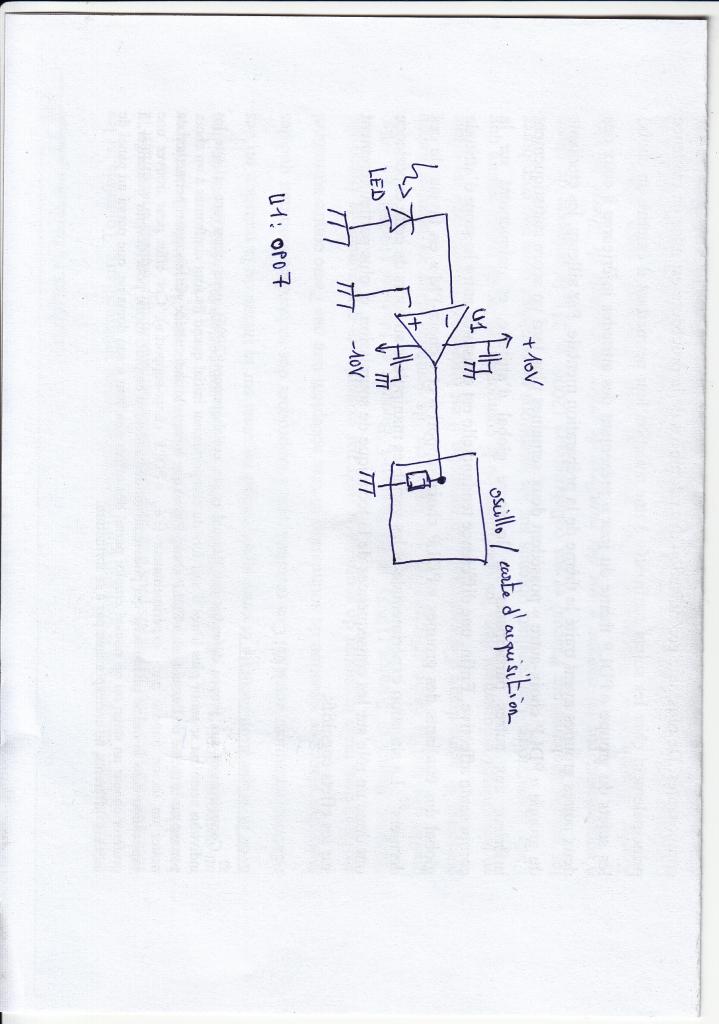 LED
U1
+
−
+10V
-10V
oscillo / carte d'acquisition
U1: OP07